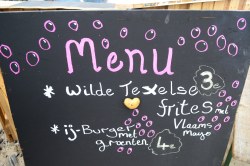 Menu
* Wilde Texelse 3e
frites met
Vlaamse
Mayo
* ij-Burger
met
groenten 4e